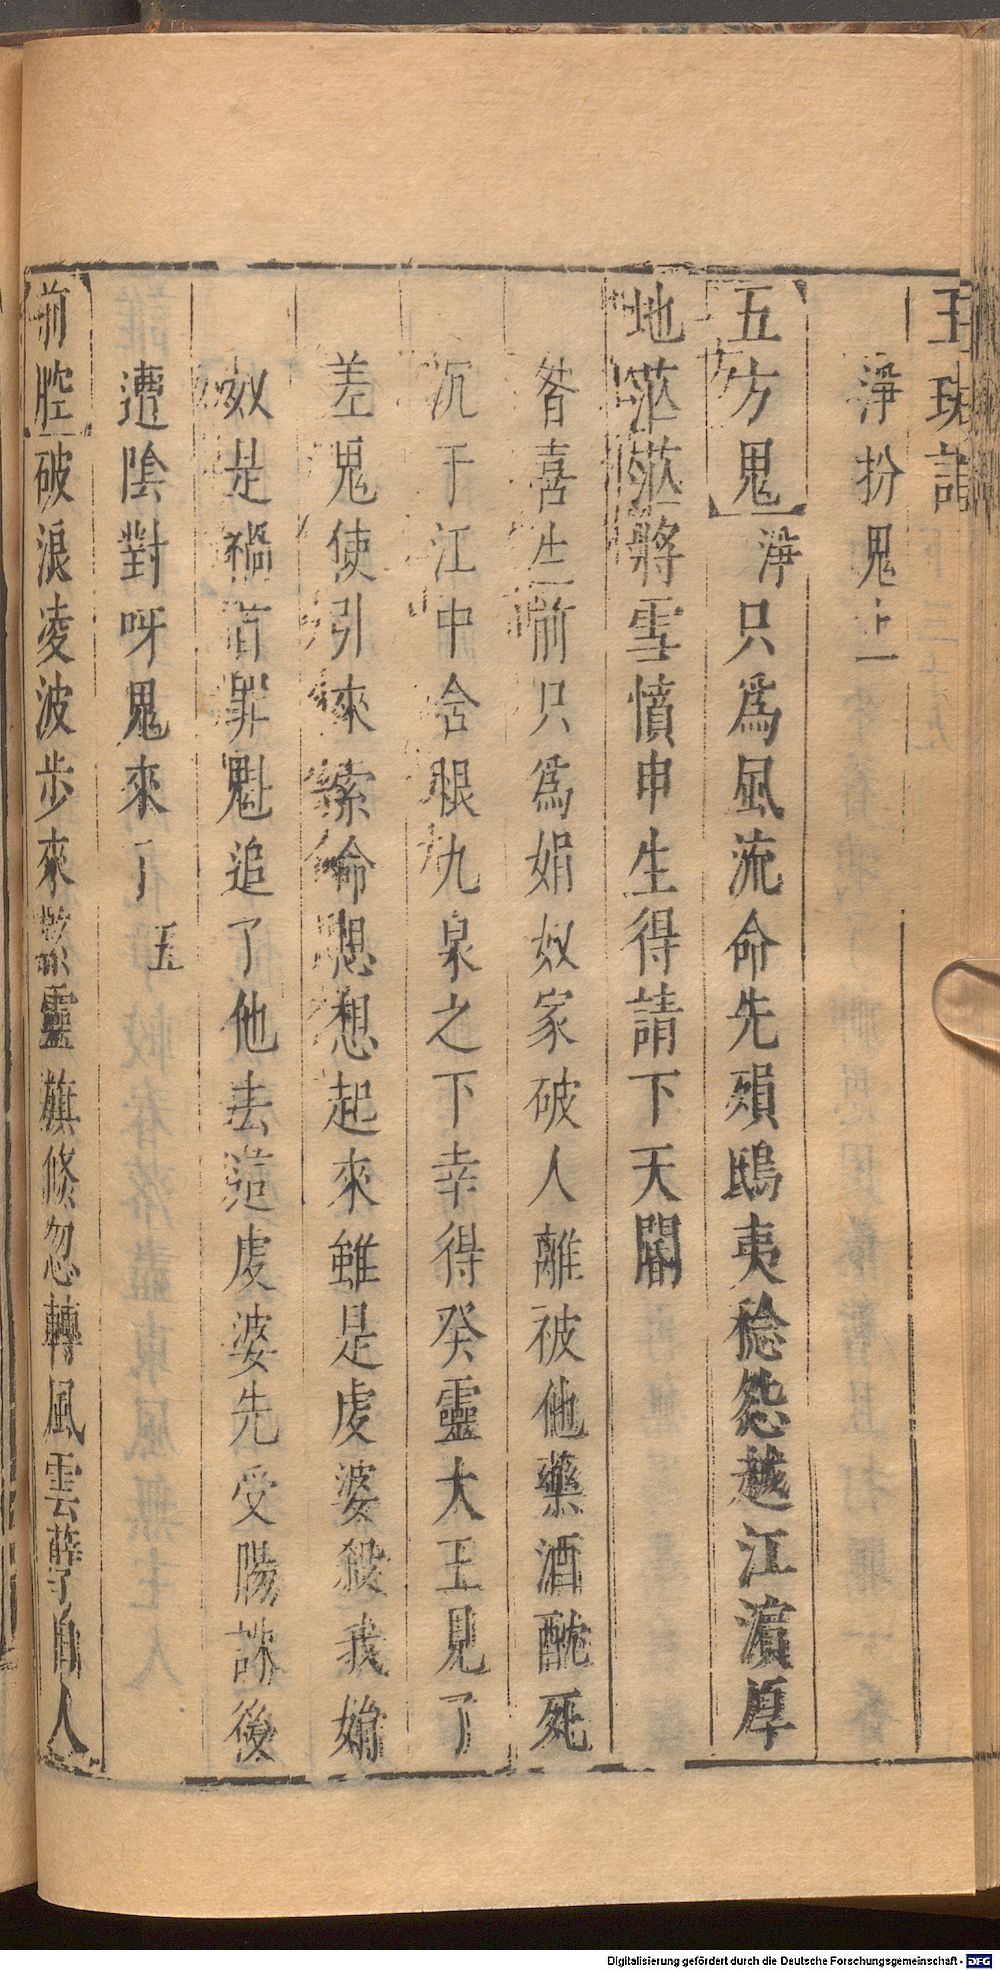 玉珠記
淨扮鬼上
五方鬼 淨 只爲風流命先殞鴟夷稔怨越江濵厚
地茫茫將雪憤申生得請下天閽
昝喜生前只爲娟奴家破人離被他藥酒酖死
沉于江中含恨九泉之下幸得癸靈大王見了
差鬼使引來索命想想起來雖是虔婆殺我娟
奴是禍首罪魁追了他去這虔婆先受陽誅後
遭陰對呀鬼來了 五
前腔 破浪凌波步來 靈旗倐忽轉風雲孽由人
Digitalisierung gefördert durch die Deutsche Forschungsgemeinschaft - DFG